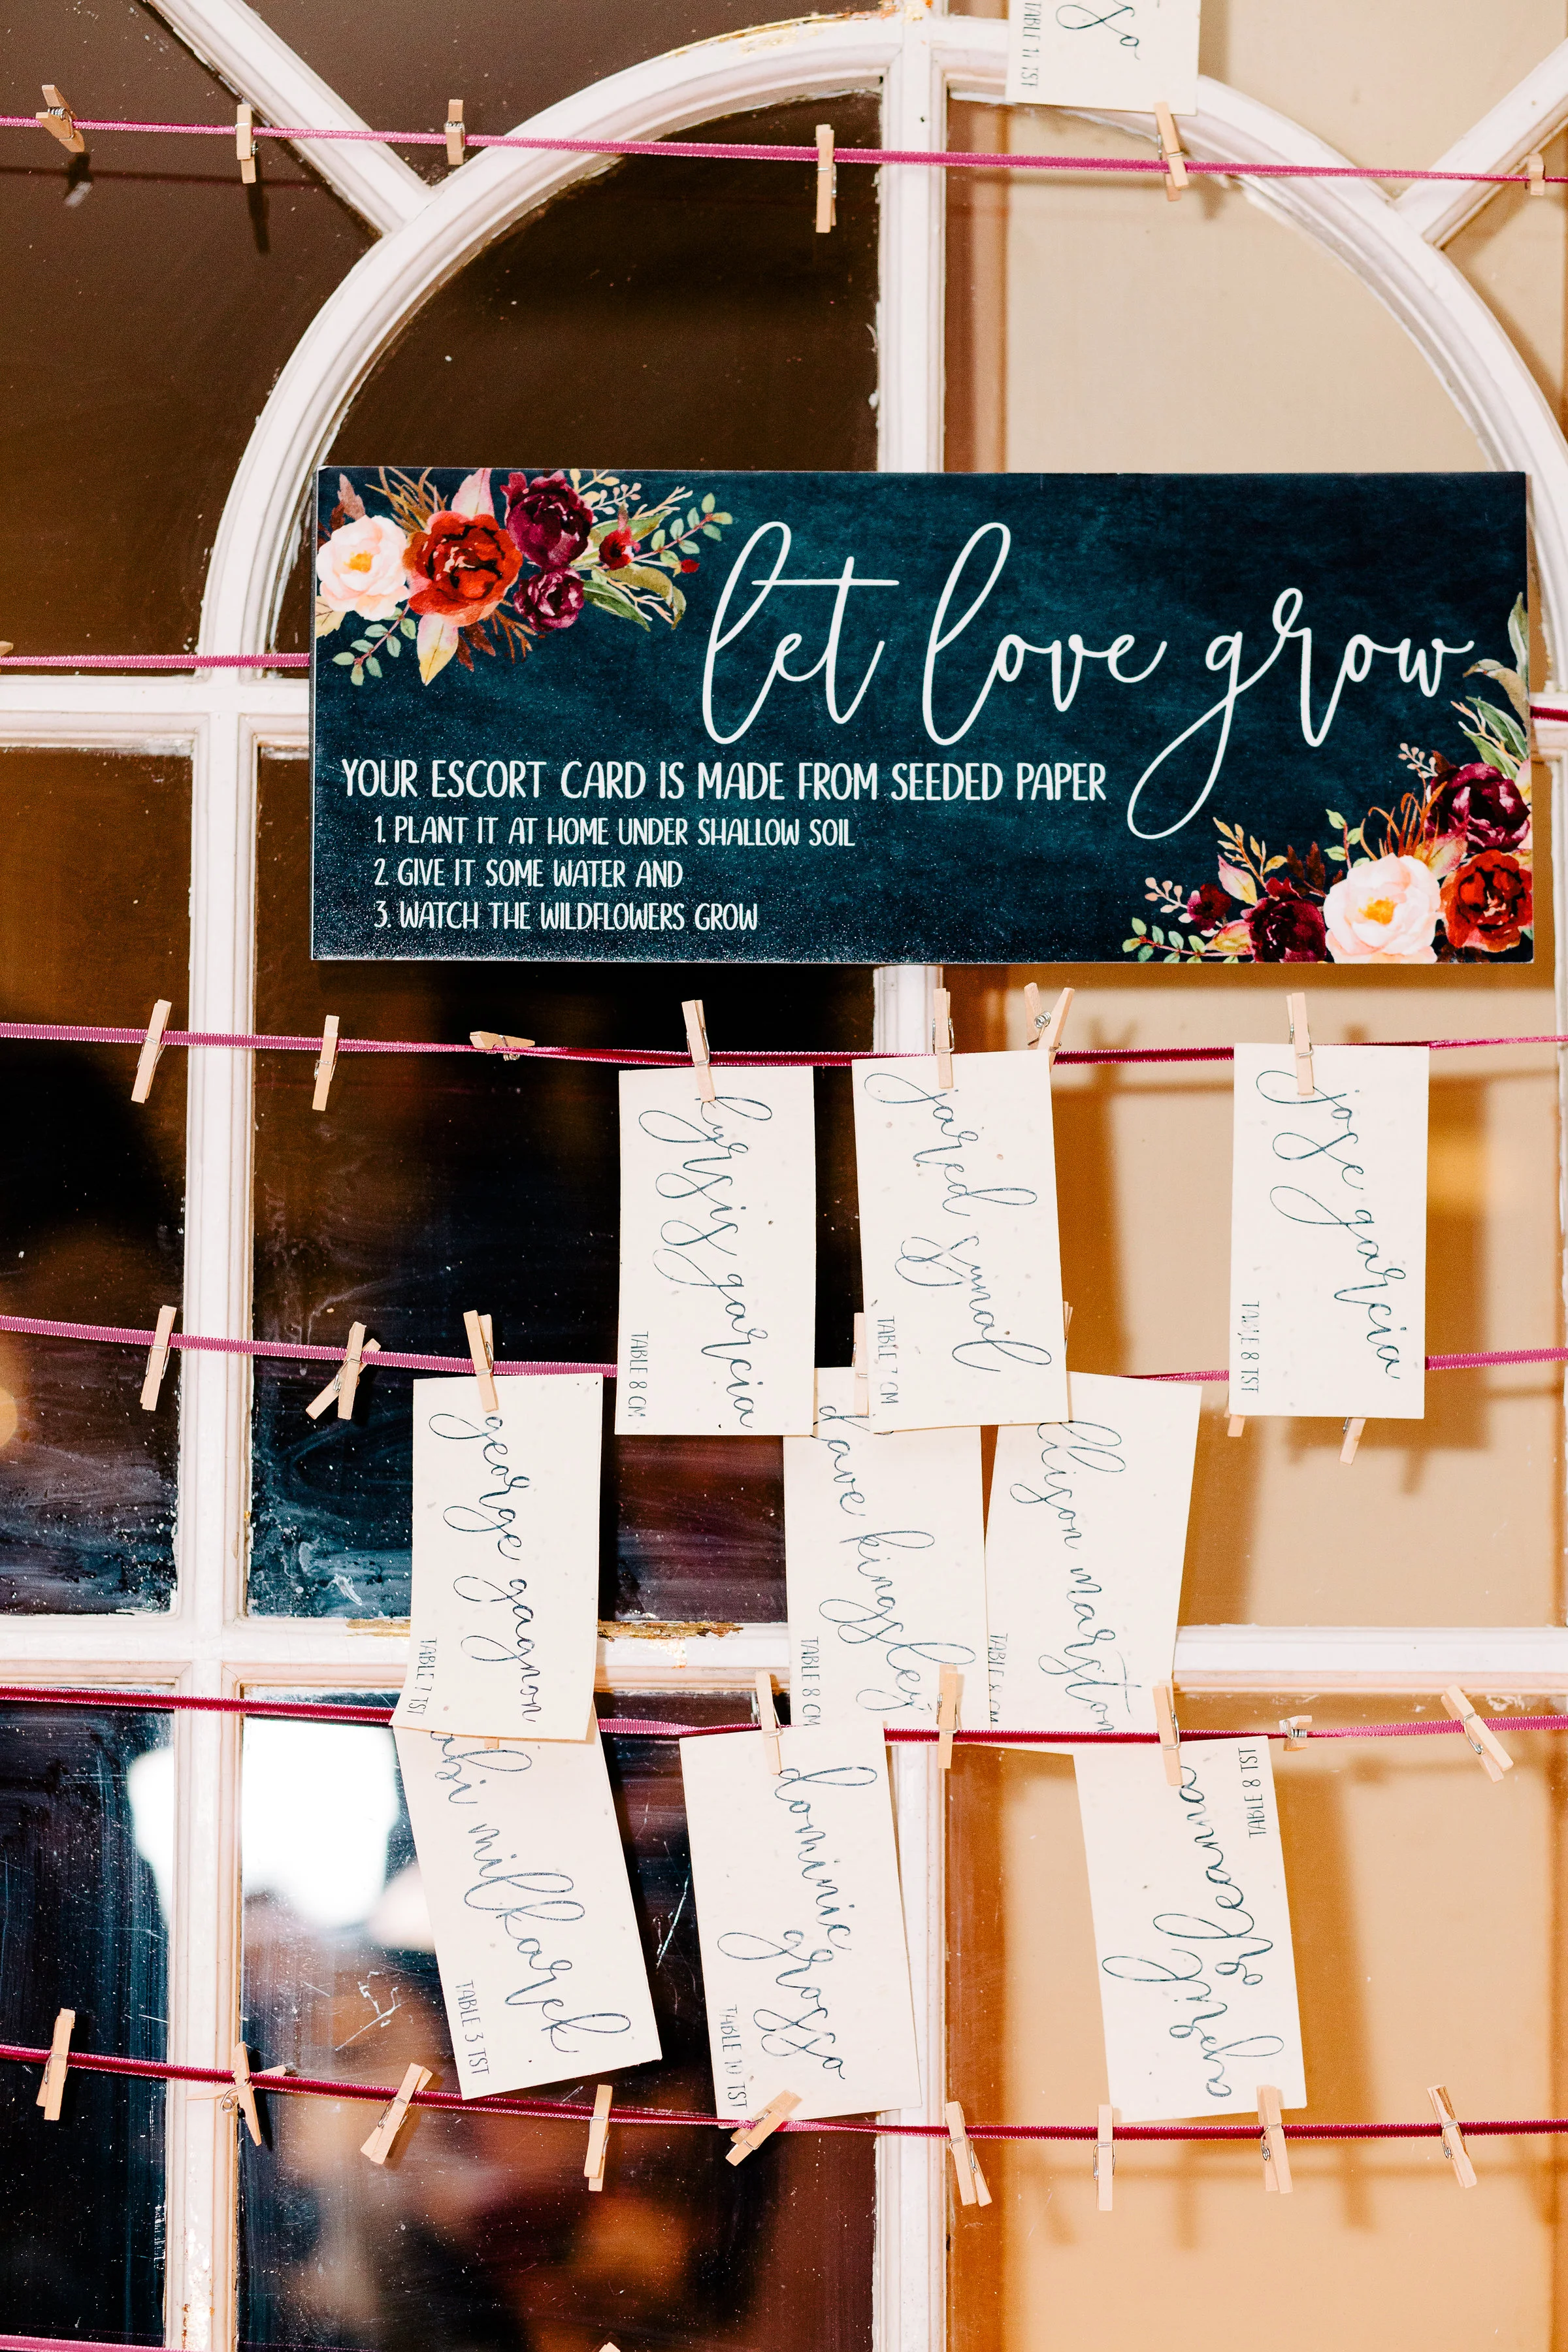 TABLE 11 TST
let love grow
YOUR ESCORT CARD IS MADE FROM SEEDED PAPER
1. PLANT IT AT HOME UNDER SHALLOW SOIL
2. GIVE IT SOME WATER AND
3. WATCH THE WILDFLOWERS GROW
garcia
TABLE 8 CM
jared
TABLE 7 CM
jose garcia
TABLE 8 TST
george gagnon
TABLE 7 TST
dave kingsley
TABLE 8 CM
marston
TABLE 8 CM
milkarek
TABLE 3 TST
dominic
grosso
TABLE 10 TST
april
TABLE 8 TST